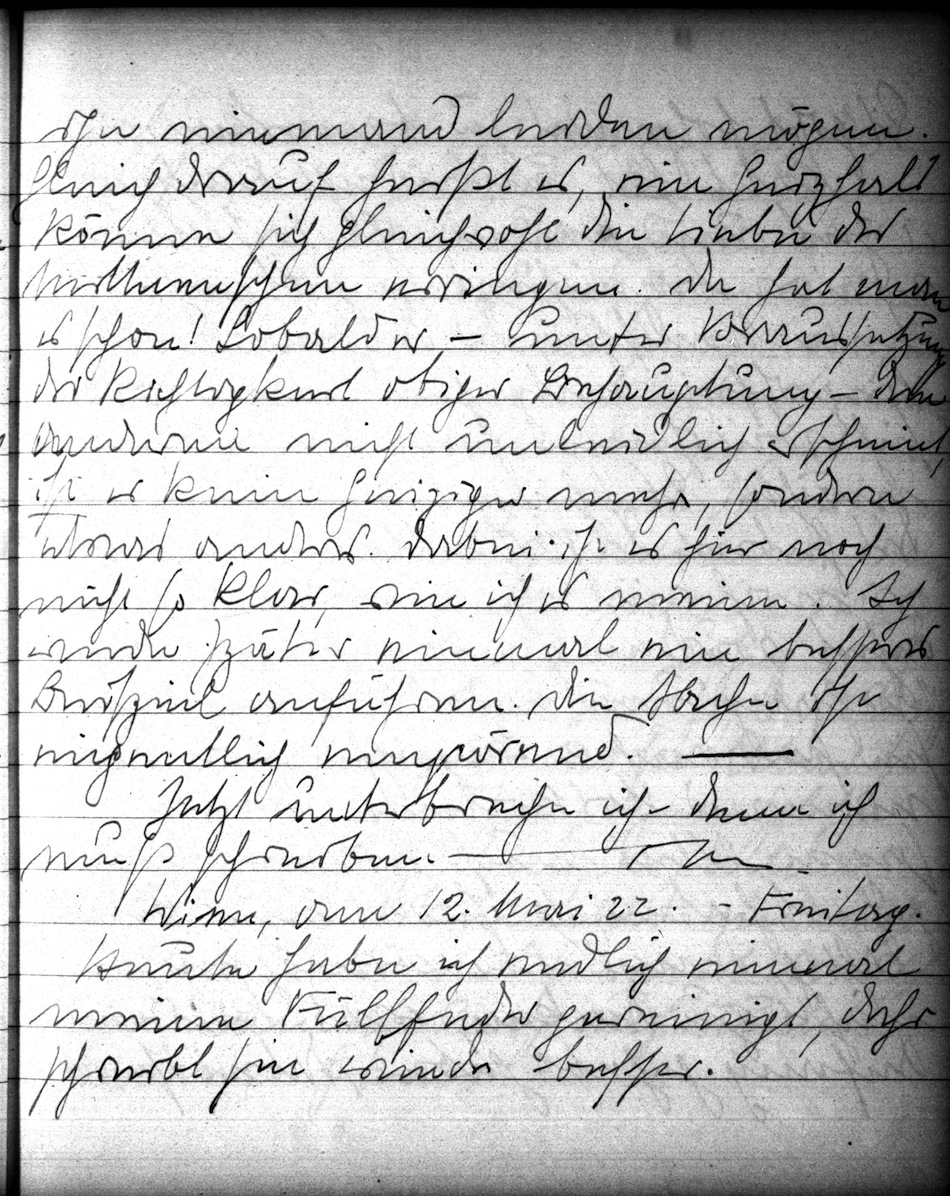 ihn niemand leiden mögen.
Gleich darauf heißt es, ein Geizhals
könne sich gleichwohl die Liebe der
Mitmenschen erringen. Da hat man
es schon! Sobald er – unter Voraussetzung
der Richtigkeit obiger Behauptung – den
anderen nicht unleidlich erscheint,
ist er kein Geiziger mehr, sondern
etwas anders. Dabei ist es hier noch
nicht so klar, wie ich es meine. Ich
werde später einmal ein besseres
Beispiel anführen. Die Sache ist
eigentlich empörend. —
Jetzt unterbreche ich – denn ich
muß schreiben. —
Wien, am 12. Mai 22. – Freitag.
Heute habe ich endlich einmal
meine Füllfeder gereinigt, daher
schreibt sie wieder besser.